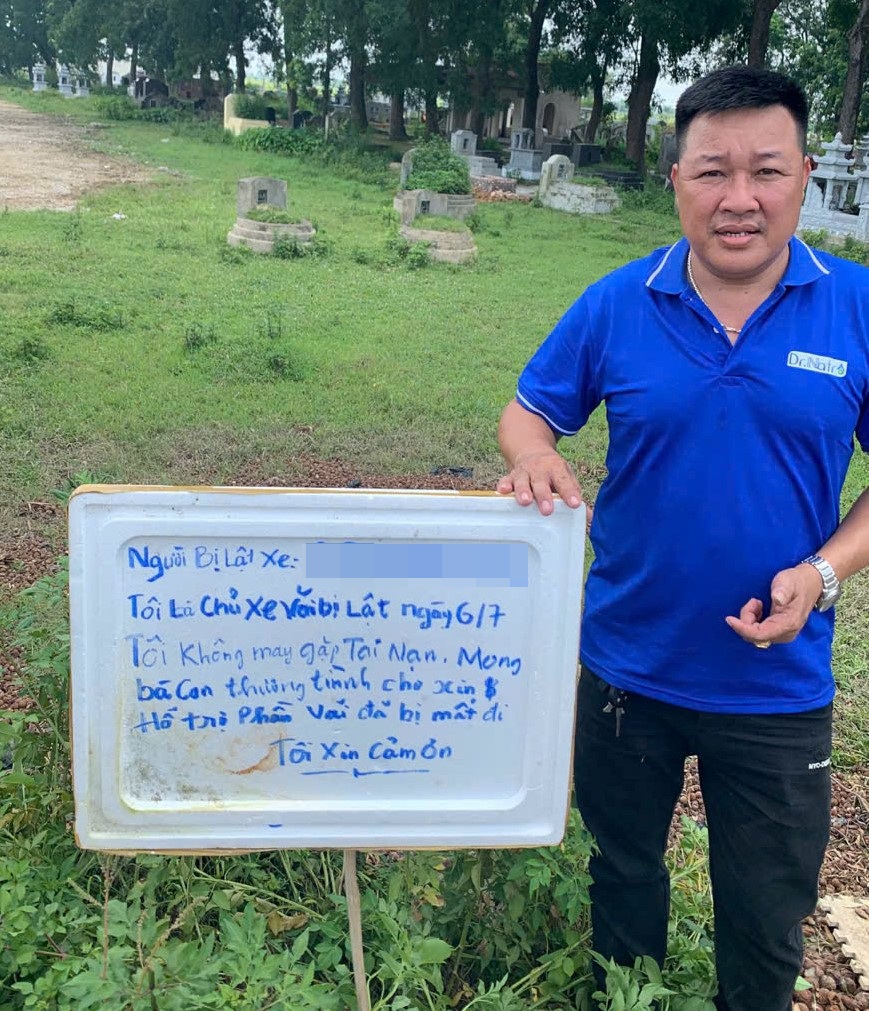 Dr.Natro
Người Bị Lật xe:
Tôi Là Chủ Xe Vải bị Lật ngày 6/7
Tôi Không may gặp Tai Nạn. Mong
bà Con thương tình cho xin $
Hổ trợ Phần Vải đã bị mất đi
Tôi Xin Cảm ơn